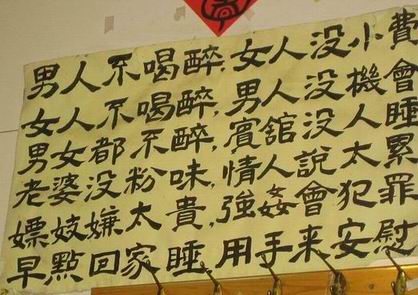 男人不喝醉,女人没小費
女人不喝醉,男人没機會
男女都不醉,賓舘没人睡
老婆没粉味,情人說太累
嫖妓嫌太貴,強姦會犯罪
早點回家睡,用手来安慰